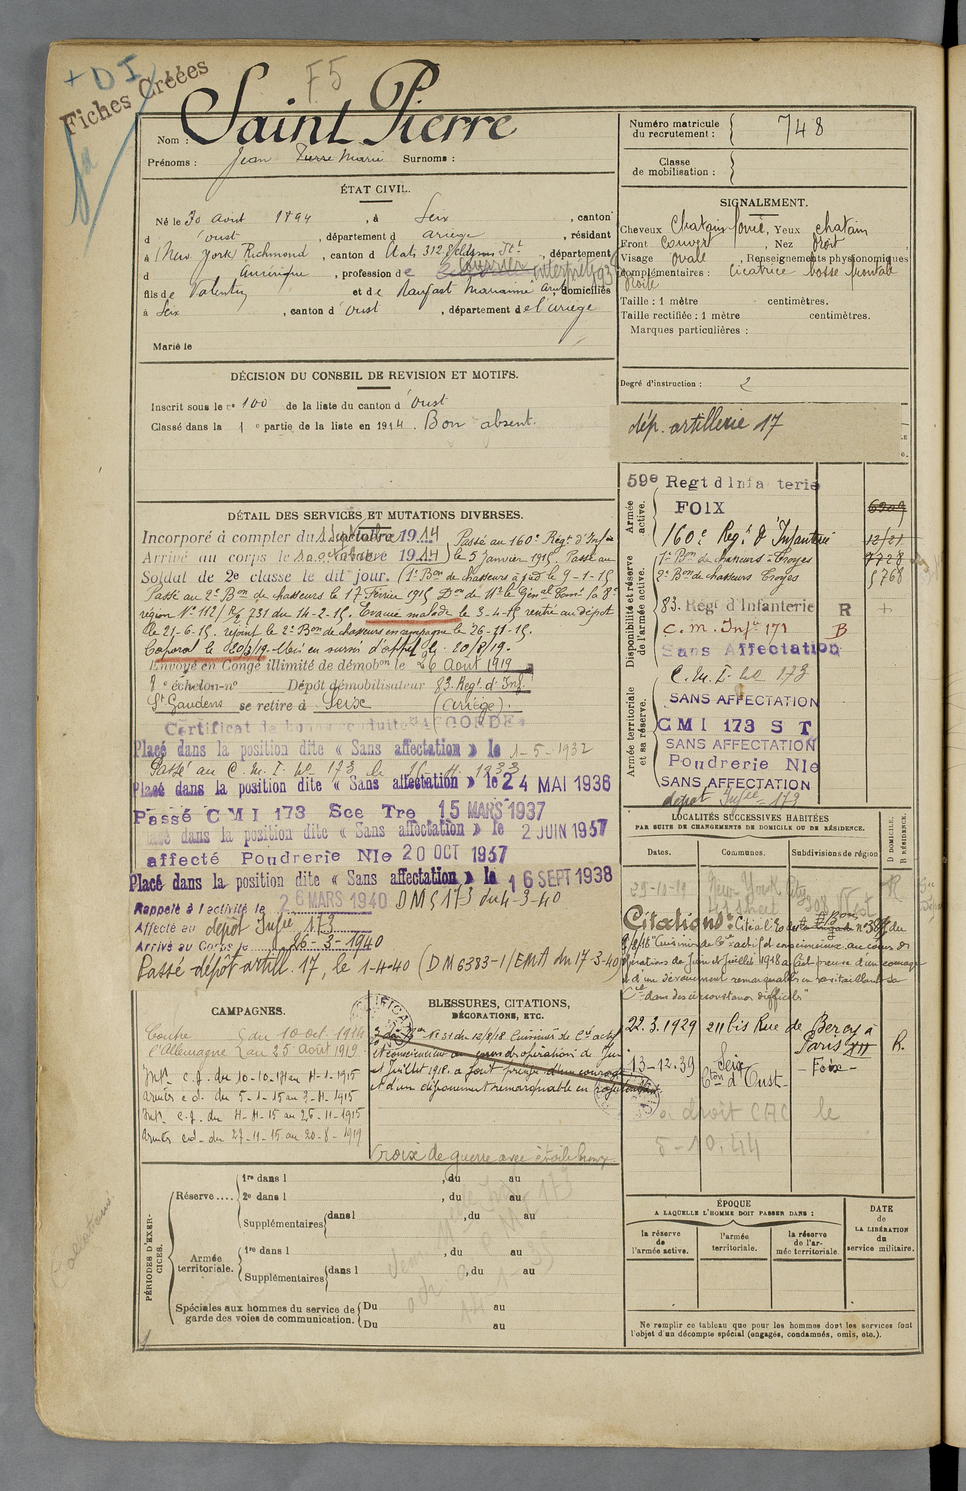 + DI
Fiches Créées
F5
Nom : Saint Pierre
Prénoms : Jean Pierre Marie Surnoms :
Numéro matricule du recrutement : 748
Classe de mobilisation :
ÉTAT CIVIL.
Né le 30 Aout 1894, à Seix, canton
d'Oust, département d Ariège, résidant
à (New York) Richmond, canton d Etats 312, département
d Amérique, profession de interprète
fils de Valentin et de Raufast Marianne, domiciliés
à Seix, canton d'Oust, département de l'Ariège
Marié le
SIGNALEMENT.
Cheveux Chatain foncé, Yeux chatain
Front couvert, Nez droit
Visage ovale, Renseignements physionomiques
complémentaires : cicatrice bosse frontale
droite
Taille : 1 mètre centimètres.
Taille rectifiée : 1 mètre centimètres.
Marques particulières :
Degré d'instruction : 2
DÉCISION DU CONSEIL DE REVISION ET MOTIFS.
Inscrit sous le n° 100 de la liste du canton d'Oust
Classé dans la 1e partie de la liste en 1914. Bon absent.
dép. artillerie 17
DÉTAIL DES SERVICES ET MUTATIONS DIVERSES.
Incorporé à compter du 1 Septembre 1914 Passé au 160e Régt d'Infie
Arrivé au corps le 10 octobre 1914 le 5 Janvier 1915 Passé au
Soldat de 2e classe le dit jour. (1er Bon de chasseurs à pied le 9-1-15
Passé au 2e Bon de chasseurs le 17 Février 1915 Don de Mr le Génal Comt la 8e
région No 112/ 731 du 14-2-15. Evacué malade le 3-4-15 rentré au dépot
le 21-6-15. rejoint le 2e Bon de chasseurs en campagne le 26-11-15.
Caporal le 20/3/19. Mis en sursis d'appel le 20/8/19.
Envoyé en Congé illimité de démobon le 26 Août 1919
9e échelon-no Dépôt démobilisateur 83. Regt d'Inf.
St Gaudens se retire à Seix (Ariège).
Certificat de bonne conduite "ACCORDÉ"
Placé dans la position dite « Sans affectation » le 1-5-1932
Passé au C. M. I. No 173 le 1933
Placé dans la position dite « Sans affectation » le 24 MAI 1936
Passé CMI 173 Sce Tre 15 MARS 1937
Placé dans la position dite « Sans affectation » le 2 JUIN 1937
affecté Poudrerie Nle 20 OCT 1937
Placé dans la position dite « Sans affectation » le 16 SEPT 1938
Rappelé à l'activité le 26 MARS 1940 DMS 173 du 4-3-40
Affecté au dépôt Infie 173
Arrivé au Corps le 26-3-1940
Passé dépôt artill. 17, le 1-4-40 (DM 6383-1/EMA du 17-3-40)
Armée active.
59e Regt d'Infanterie
FOIX
160e Regt d'Infanterie
Disponibilité et réserve de l'armée active.
1er Bon de chasseurs à Troyes 7728
2e Bon de chasseurs Troyes 5768
83. Regt d'Infanterie R +
C. M. Infie 171 B
Sans Affectation
Armée territoriale et sa réserve.
C. M. I. No 173
SANS AFFECTATION
CMI 173 S T
SANS AFFECTATION
Poudrerie Nle
SANS AFFECTATION
dépôt Infie 173
LOCALITÉS SUCCESSIVES HABITÉES
PAR SUITE DE CHANGEMENTS DE DOMICILE OU DE RÉSIDENCE.
D DOMICILE. R RÉSIDENCE.
Dates. Communes. Subdivisions de région
29-10-19 New-York City R
street 308 West
Citations :
opérations de Juin et Juillet 1918 a fait preuve d'un courage
et d'un dévouement remarquable en ravitaillant sa
Cie dans des circonstances difficiles"
22.3.1929 211 bis Rue de Bercy à
Paris XII R.
13-12-39 Seix - Foix -
Cton d'Oust
droit CAC le
5-10.44
CAMPAGNES.
Contre du 10 oct. 1914
l'Allemagne au 25 Août 1919
Intr c. s. du 10-10-14 au 4-1-1915
Armées c. d. du 5-1-15 au 3-4-1915
Intr c. s. du 4-4-15 au 26-11-1915
Armées c. d. du 27-11-15 au 20-8-1919
BLESSURES, CITATIONS,
DÉCORATIONS, ETC.
No 31 du 12/8/18. Cuisinier de Cie actif
et Juillet 1918. a fait preuve d'un courage
et d'un dévouement remarquable en ravitaillant
Croix de guerre avec étoile bronze
PÉRIODES D'EXERCICES.
Réserve....
1re dans l , du au
2e dans l , du au
Supplémentaires dans l , du au
Armée territoriale.
1re dans l , du au
Supplémentaires dans l , du au
Spéciales aux hommes du service de garde des voies de communication.
Du au
Du au
ÉPOQUE
A LAQUELLE L'HOMME DOIT PASSER DANS :
la réserve de l'armée active.
l'armée territoriale.
la réserve de l'armée territoriale.
DATE de LA LIBÉRATION du service militaire.
Ne remplir ce tableau que pour les hommes dont les services font
l'objet d'un décompte spécial (engagés, condamnés, omis, etc.).